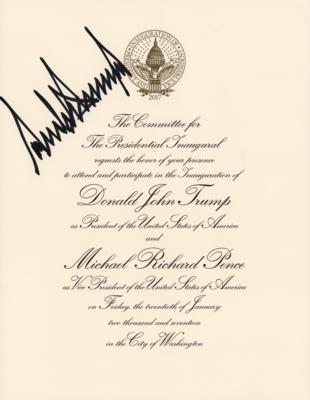 2017
The Committee for
The Presidential Inaugural
requests the honor of your presence
to attend and participate in the Inauguration of
Donald John Trump
as President of the United States of America
and
Michael Richard Pence
as Vice President of the United States of America
on Friday, the twentieth of January
two thousand and seventeen
in the City of Washington